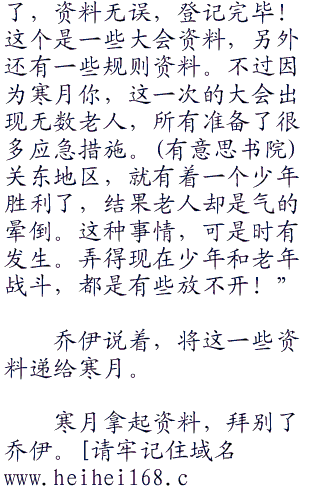 了，资料无误，登记完毕！
这个是一些大会资料，另外
还有一些规则资料。不过因
为寒月你，这一次的大会出
现无数老人，所有准备了很
多应急措施。(有意思书院)
关东地区，就有着一个少年
胜利了，结果老人却是气的
晕倒。这种事情，可是时有
发生。弄得现在少年和老年
战斗，都是有些放不开！”
乔伊说着，将这一些资
料递给寒月。
寒月拿起资料，拜别了
乔伊。[请牢记住域名
www.heihei168.c